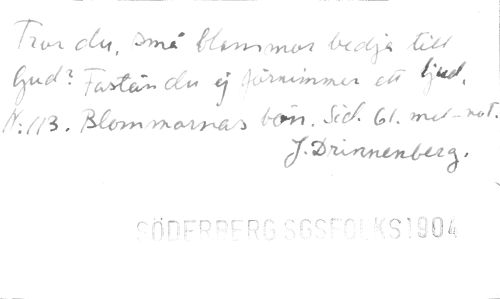 Tror du, små blommor bedja till
Gud? Fastän du ej förnimmer ett ljud.
N:113. Blommornas bön. Sid. 61. mel-not.
J. Drinnenberg.
SÖDERBERG SGSFOLKS1904